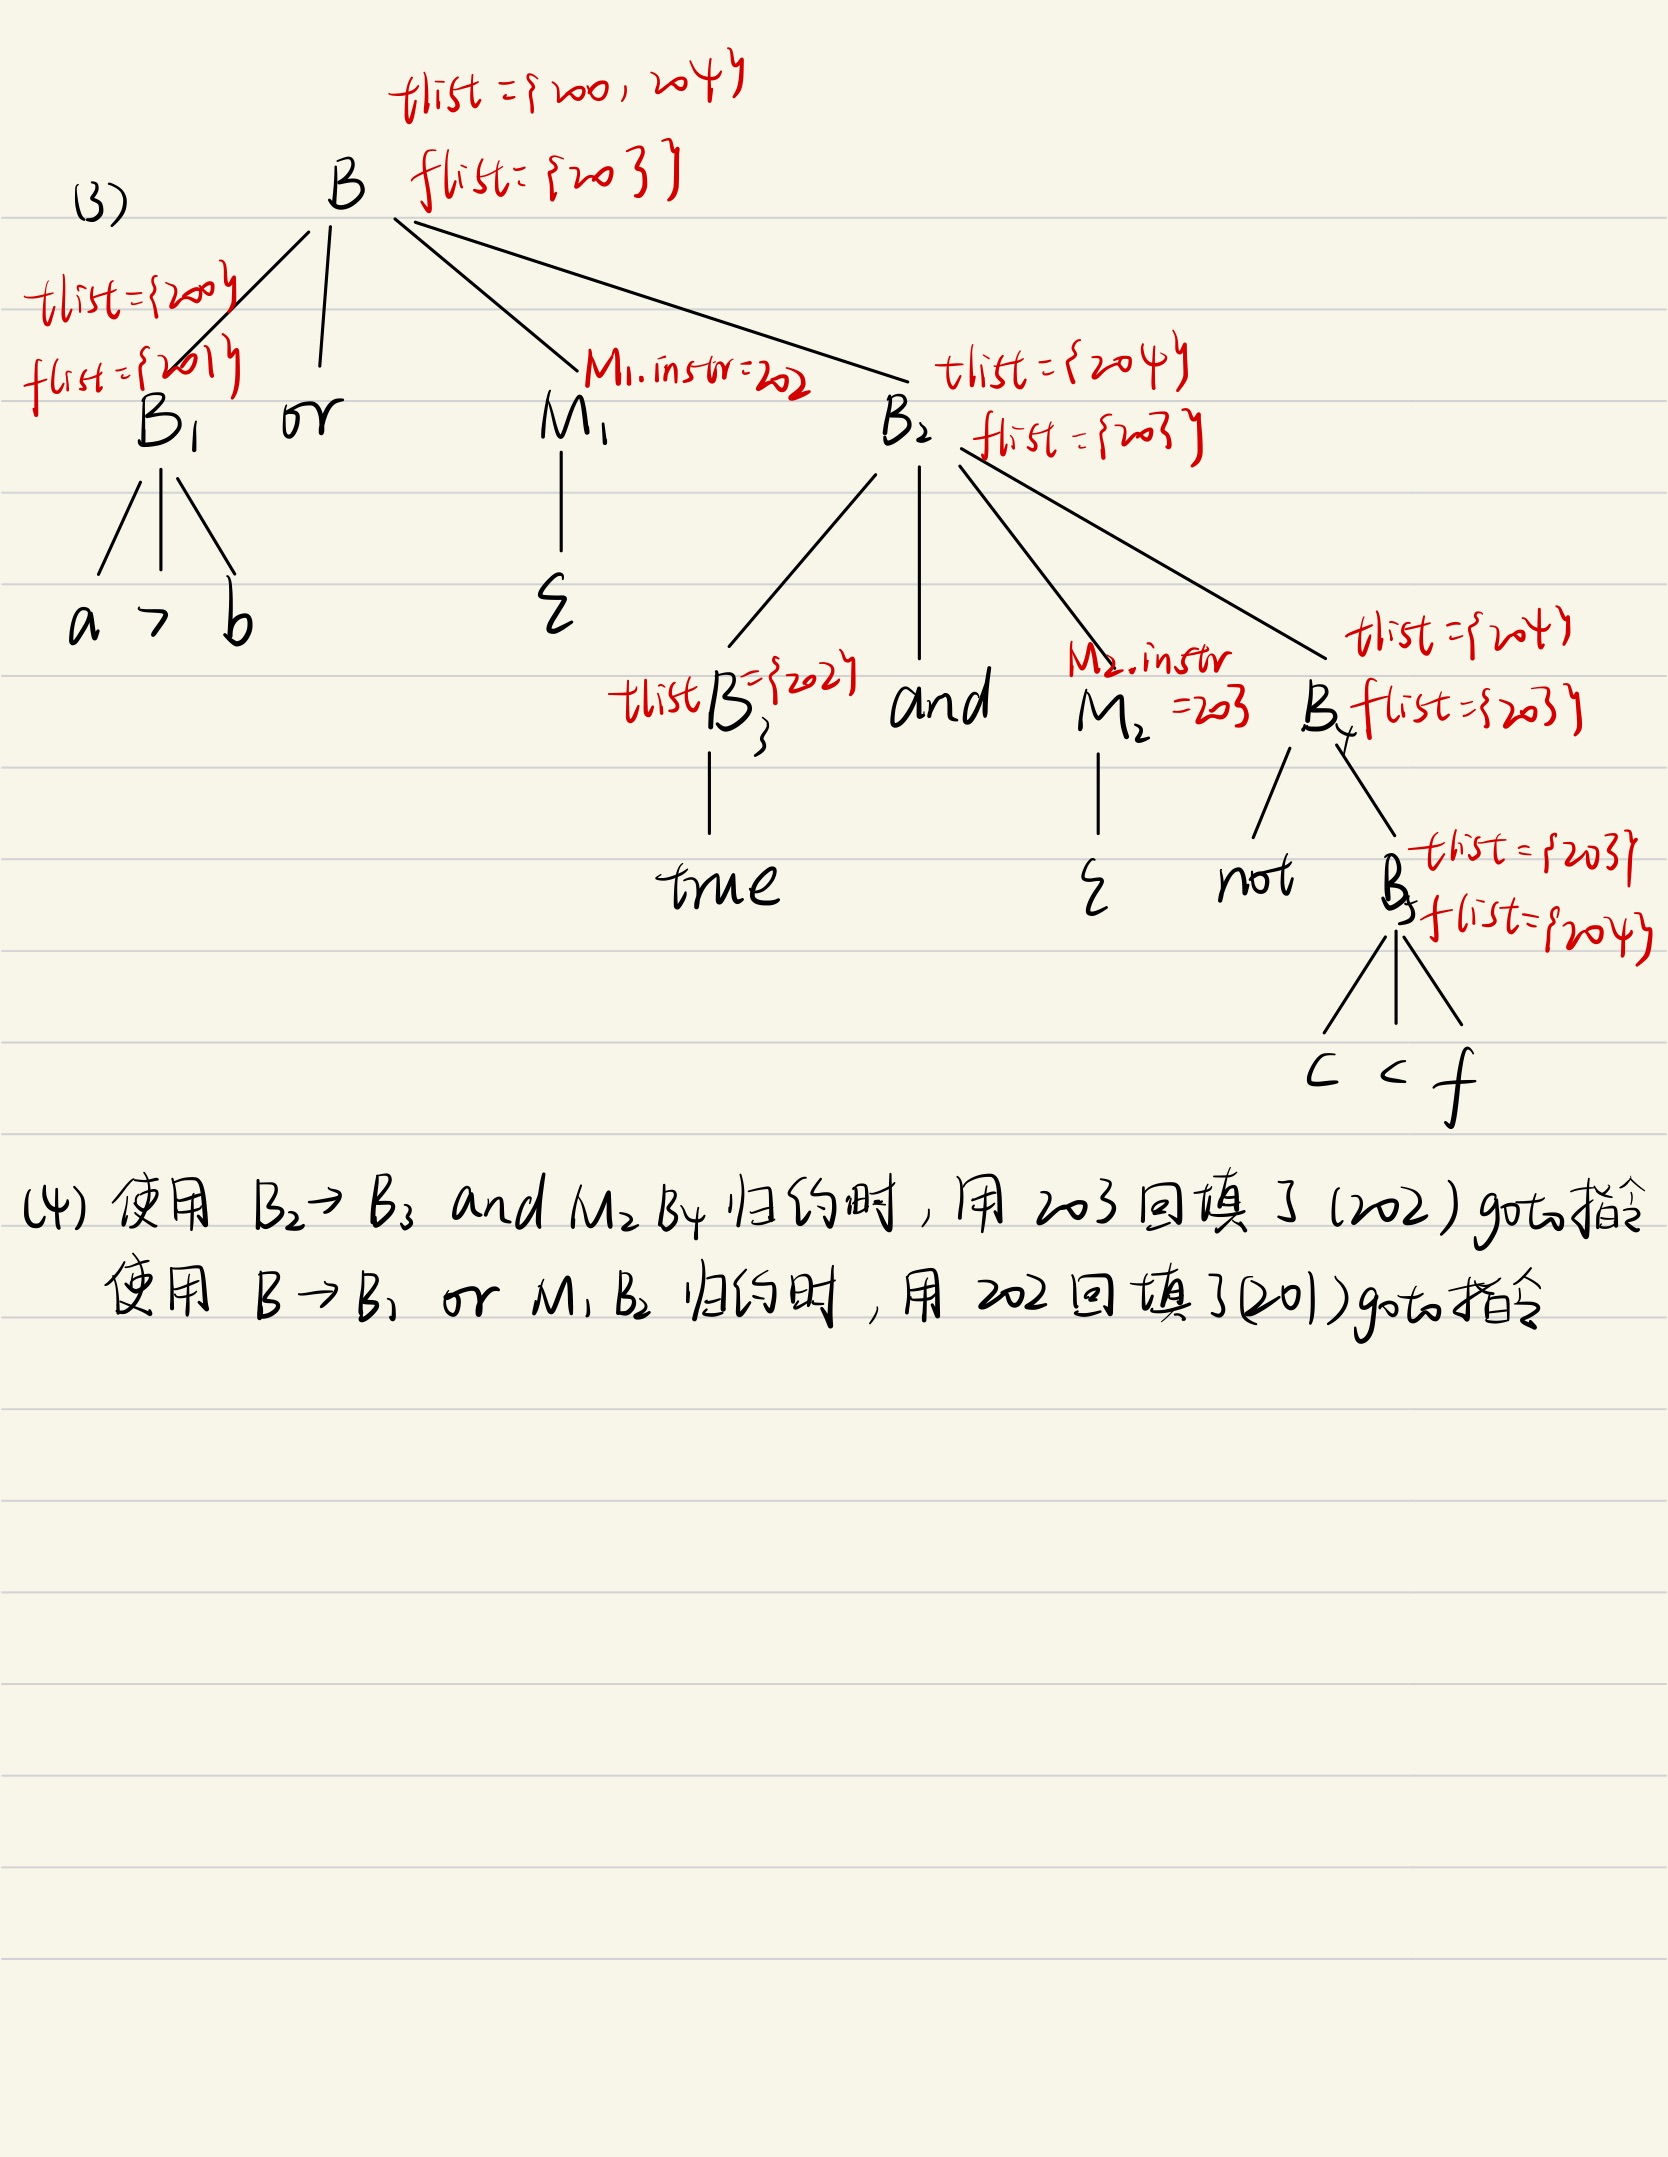 tlist={200, 204}
(3) B flist={203}
tlist={200}
flist={201} M₁.instr=202 tlist={204}
B₁ or M₁ B₂ flist={203}
a > b ε
tlist={204}
tlist B₃={202} and M₂.instr
M₂ =203 B₄ flist={203}
true ε not B₅ tlist={203}
flist={204}
c < f
(4) 使用 B₂→B₃ and M₂ B₄ 归约时, 用 203 回填了(202) goto指令
使用 B→B₁ or M₁ B₂ 归约时, 用 202 回填了(201) goto指令